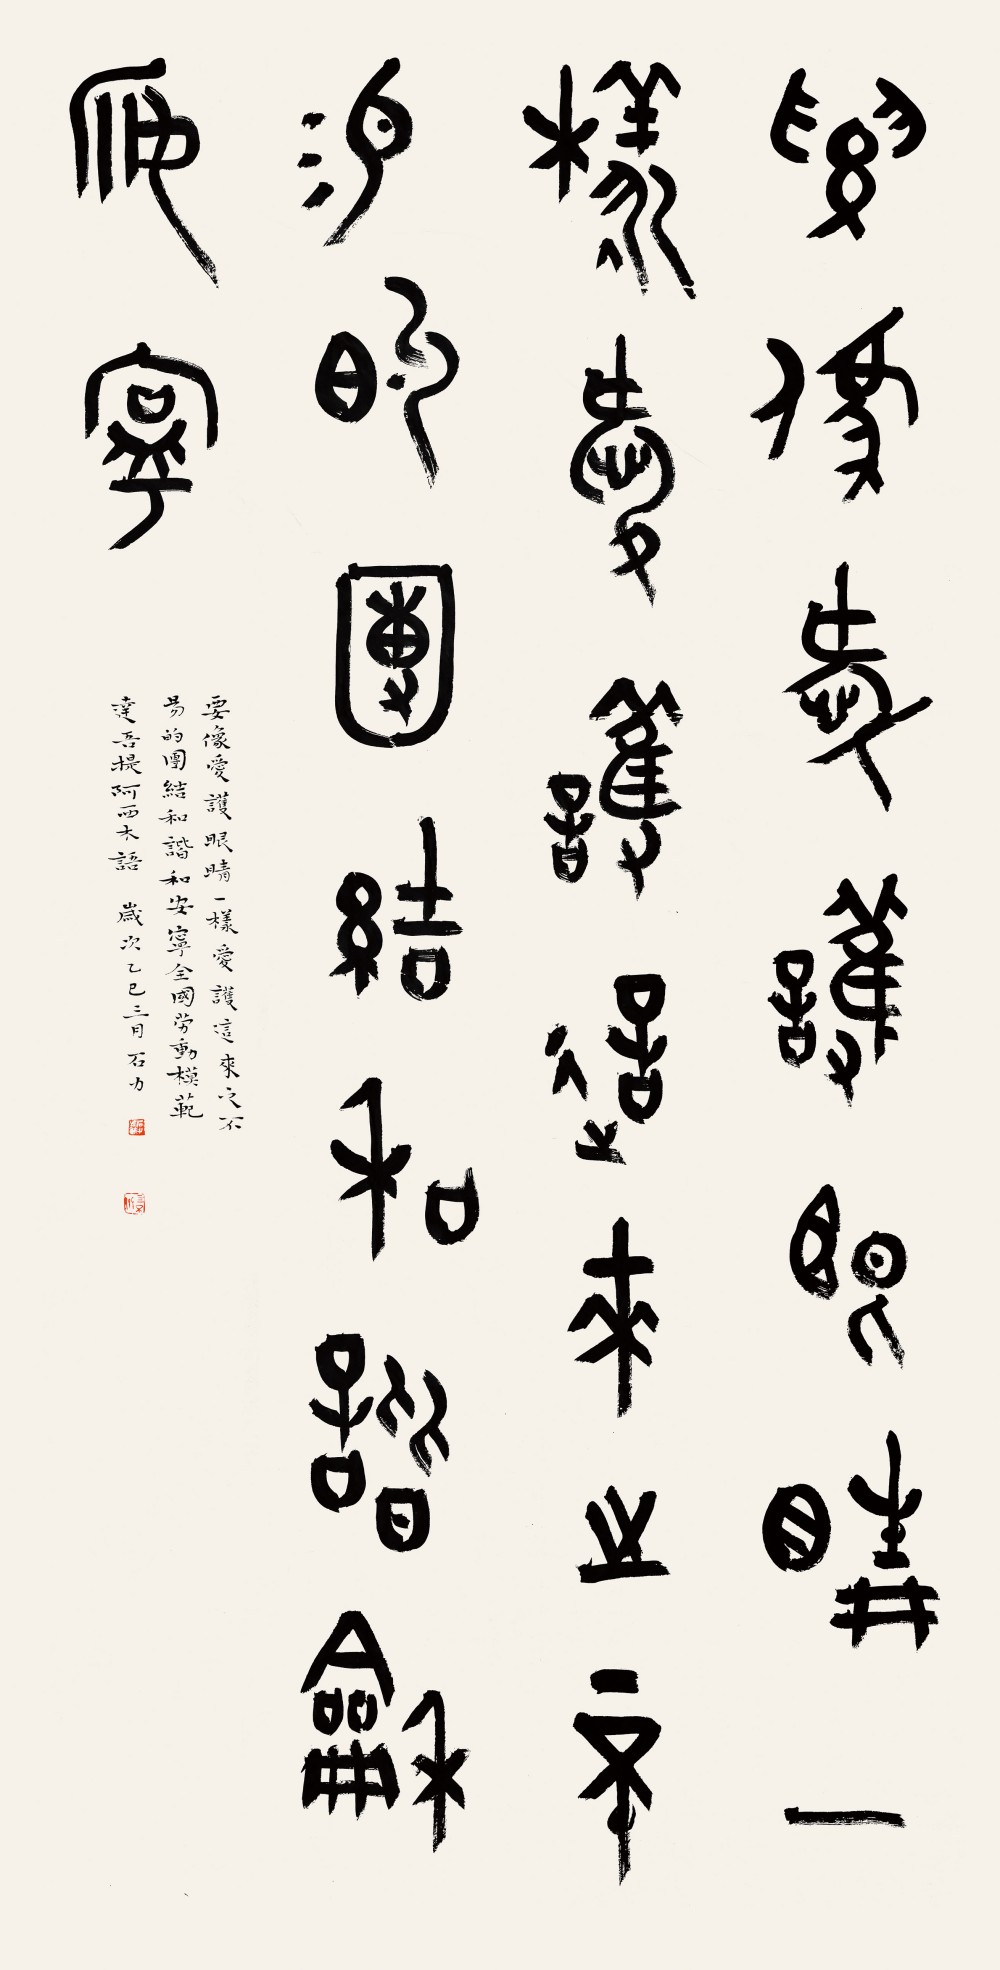 要像愛護眼睛一
樣愛護這來之不
易的團結和諧和
安寧
要像愛護眼睛一樣愛護這來之不
易的團結和諧和安寧全國勞動模範
達吾提阿西木語 歲次乙巳三月石力